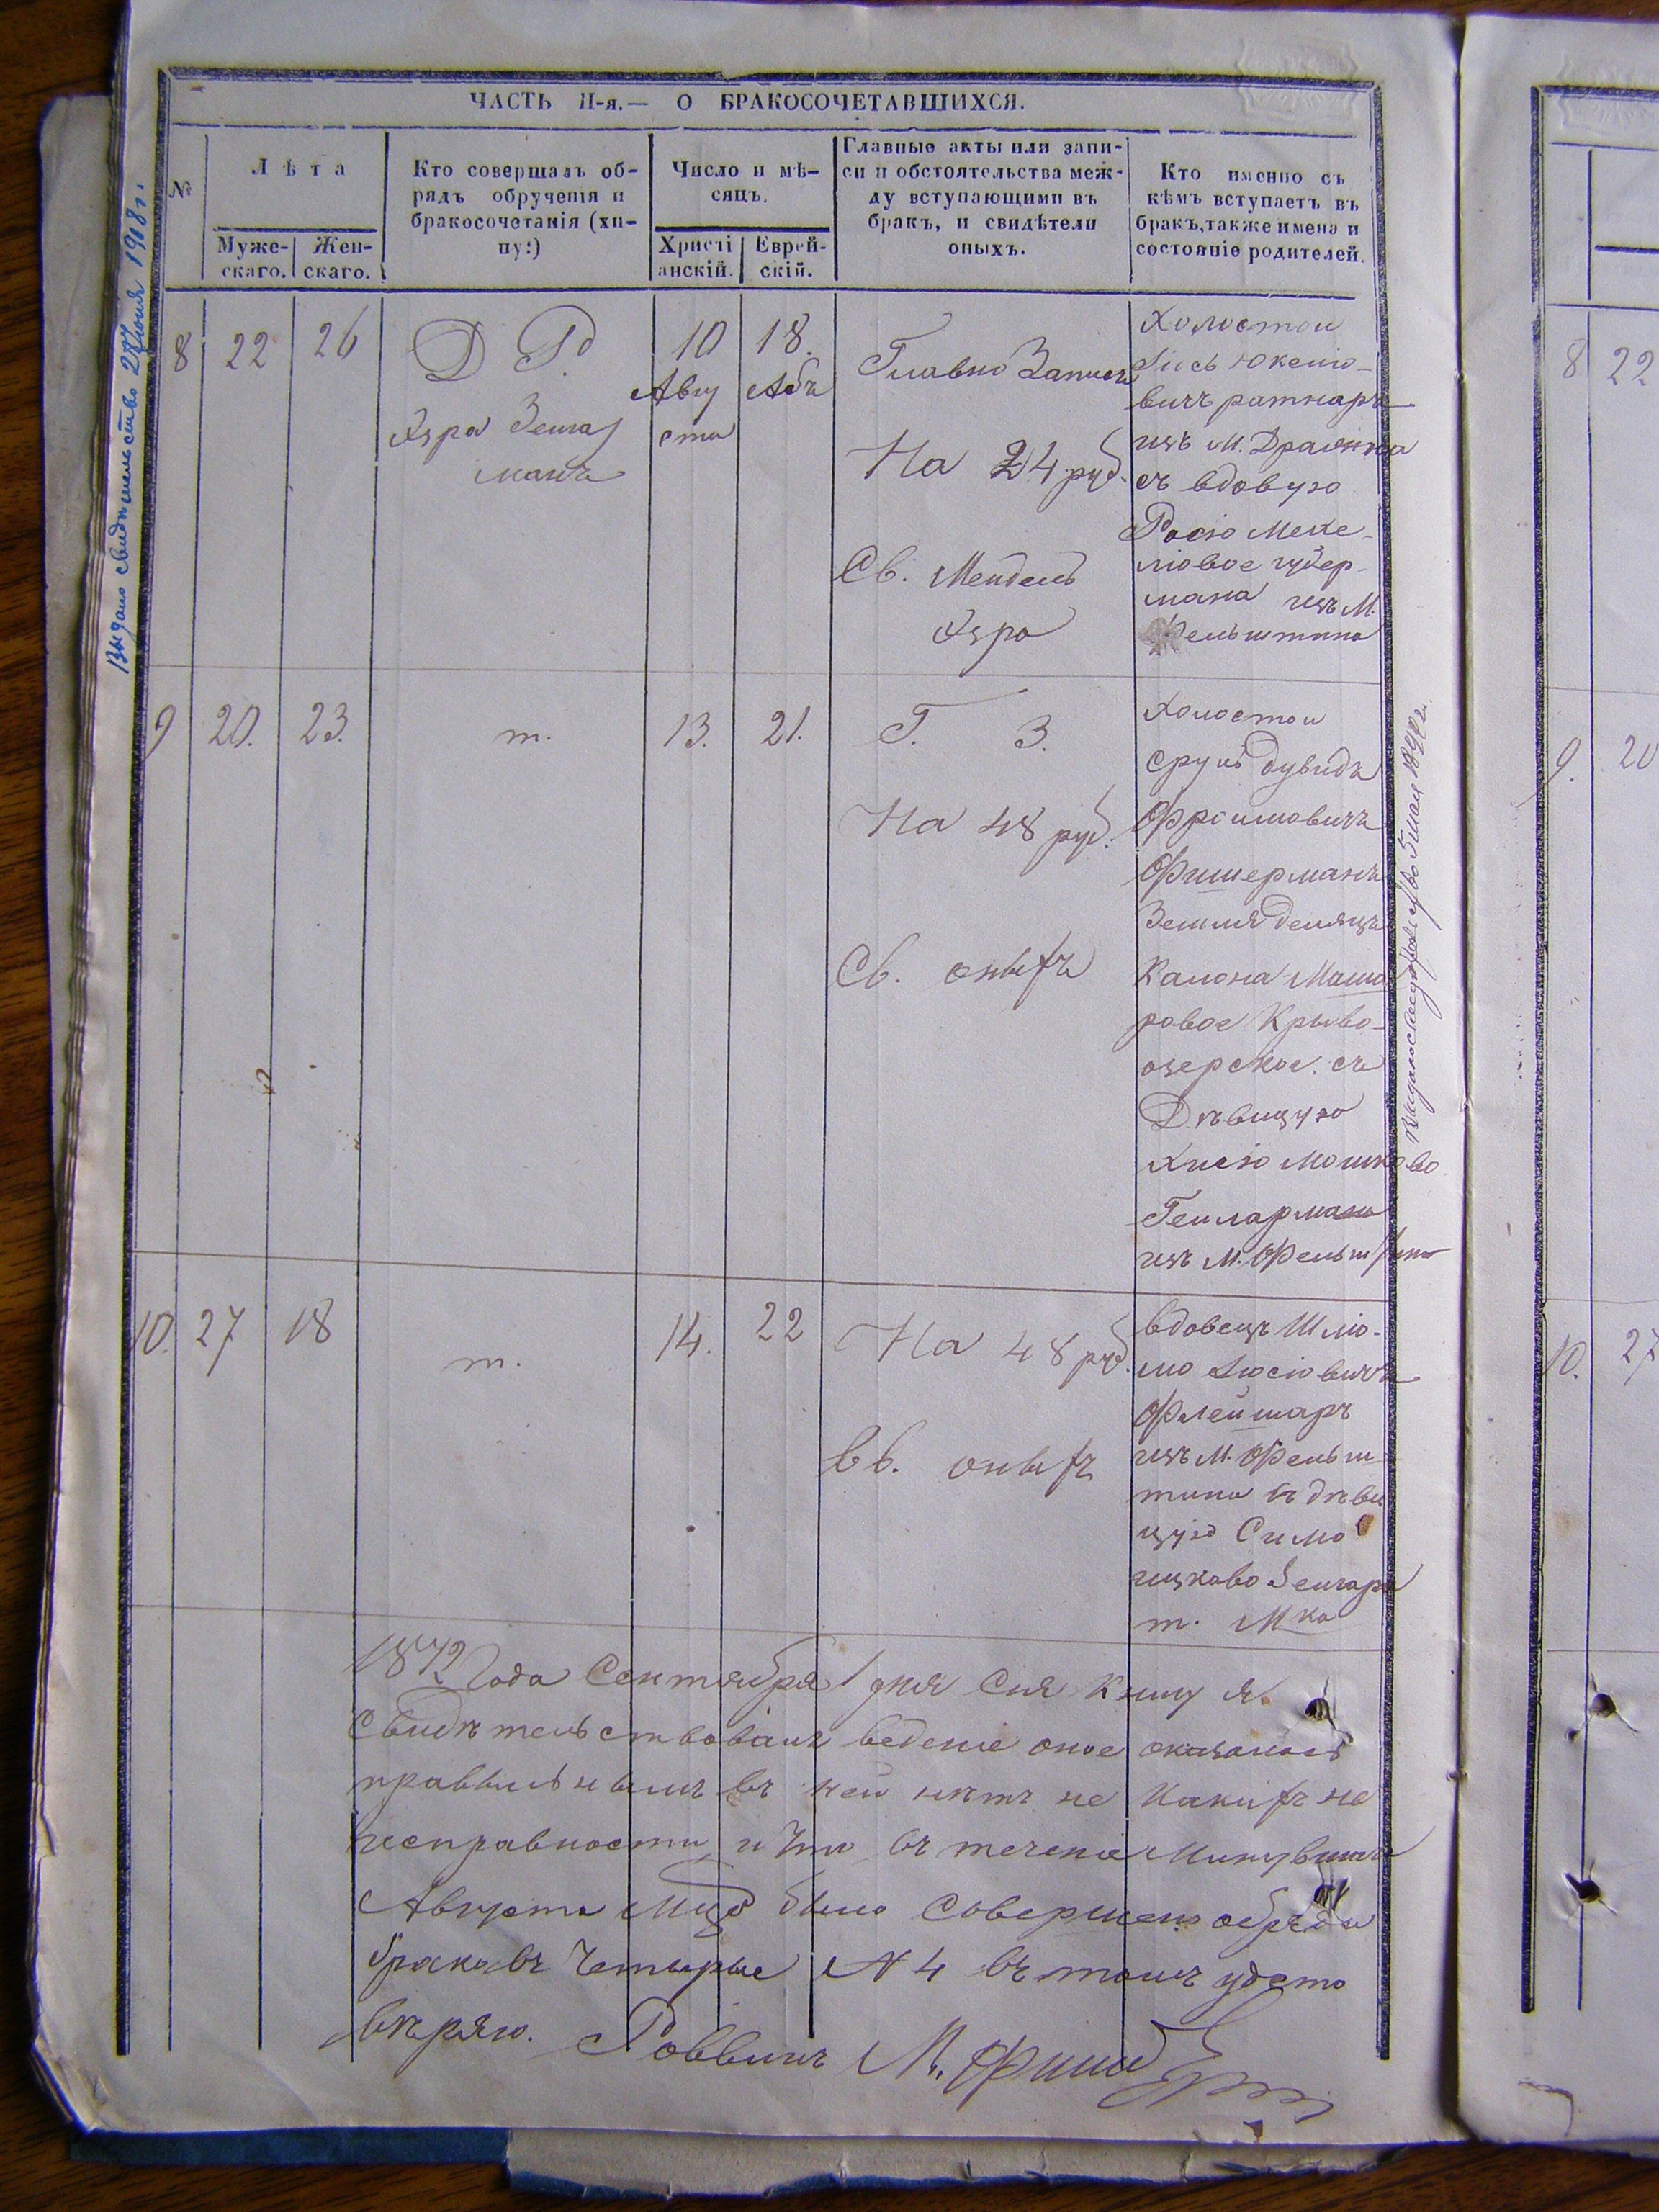 ЧАСТЬ II-я.— О БРАКОСОЧЕТАВШИХСЯ.
№
Лѣта
Муже-
скаго.
Жен-
скаго.
Кто совершалъ об-
рядъ обрученія и
бракосочетанія (хи-
пу:)
Число и мѣ-
сяцъ.
Христі
анскій.
Еврей-
скій.
Главные акты или запи-
си и обстоятельства меж-
ду вступающими въ
бракъ, и свидѣтели
оныхъ.
Кто именно съ
кѣмъ вступаетъ въ
бракъ, также имена и
состояніе родителей.
8
22
26
Д Р
10
Авгу
ста
18.
Абъ
Главно Запись
На 24 руб.
Св. Мендель
Холостои
вичъ ратнаръ
изъ М.
съ вдовую
Росю
мана изъ М.
Фельштина
9
20.
23.
т.
13.
21.
Г. З.
На 48 руб.
Св. оныхъ
Холостои
Сруль Дувидъ
Фроимовичъ
Фишерманъ
Земля делецъ
Калона
ровое Крыво-
озерское. съ
Дѣвицую
Хисю Мошково
изъ М. Фельштина
10.
27
18
т.
14.
22
На 48 руб.
Св. оныхъ
вдовецъ Шлио-
мо Лосіовичъ
Флейшаръ
изъ М. Фельш
тина съ дѣви
цую Симо
ицково
т. Мка
1872 Года Сентября 1 дня Сия Книгу я.
Свидѣтельствовалъ ведение оное оказалось
правыльнымъ въ ней нѣтъ не какихъ не
исправности, и что въ течение Минувшаго
Августа Мца было Совершено обряда
браковъ Четырые № 4 въ томъ удосто
вѣряю. Роввинъ М. Фиш
Выдано свидѣтельство 27 Іюня 1908 г.
8
22
9.
20
10.
27